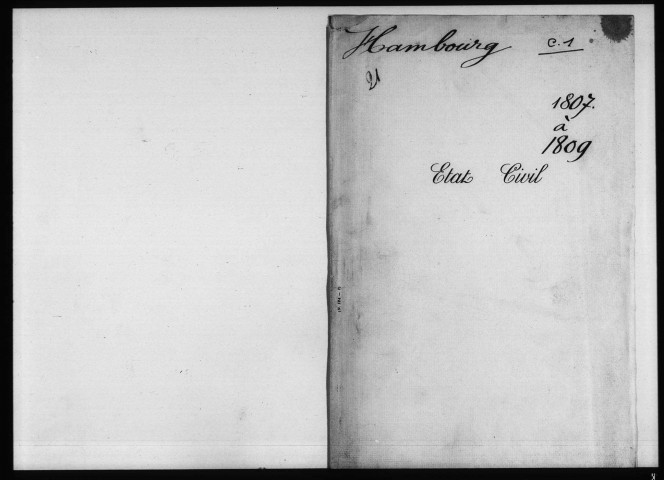 Hambourg C.1
21
1807.
à
1809
Etat Civil